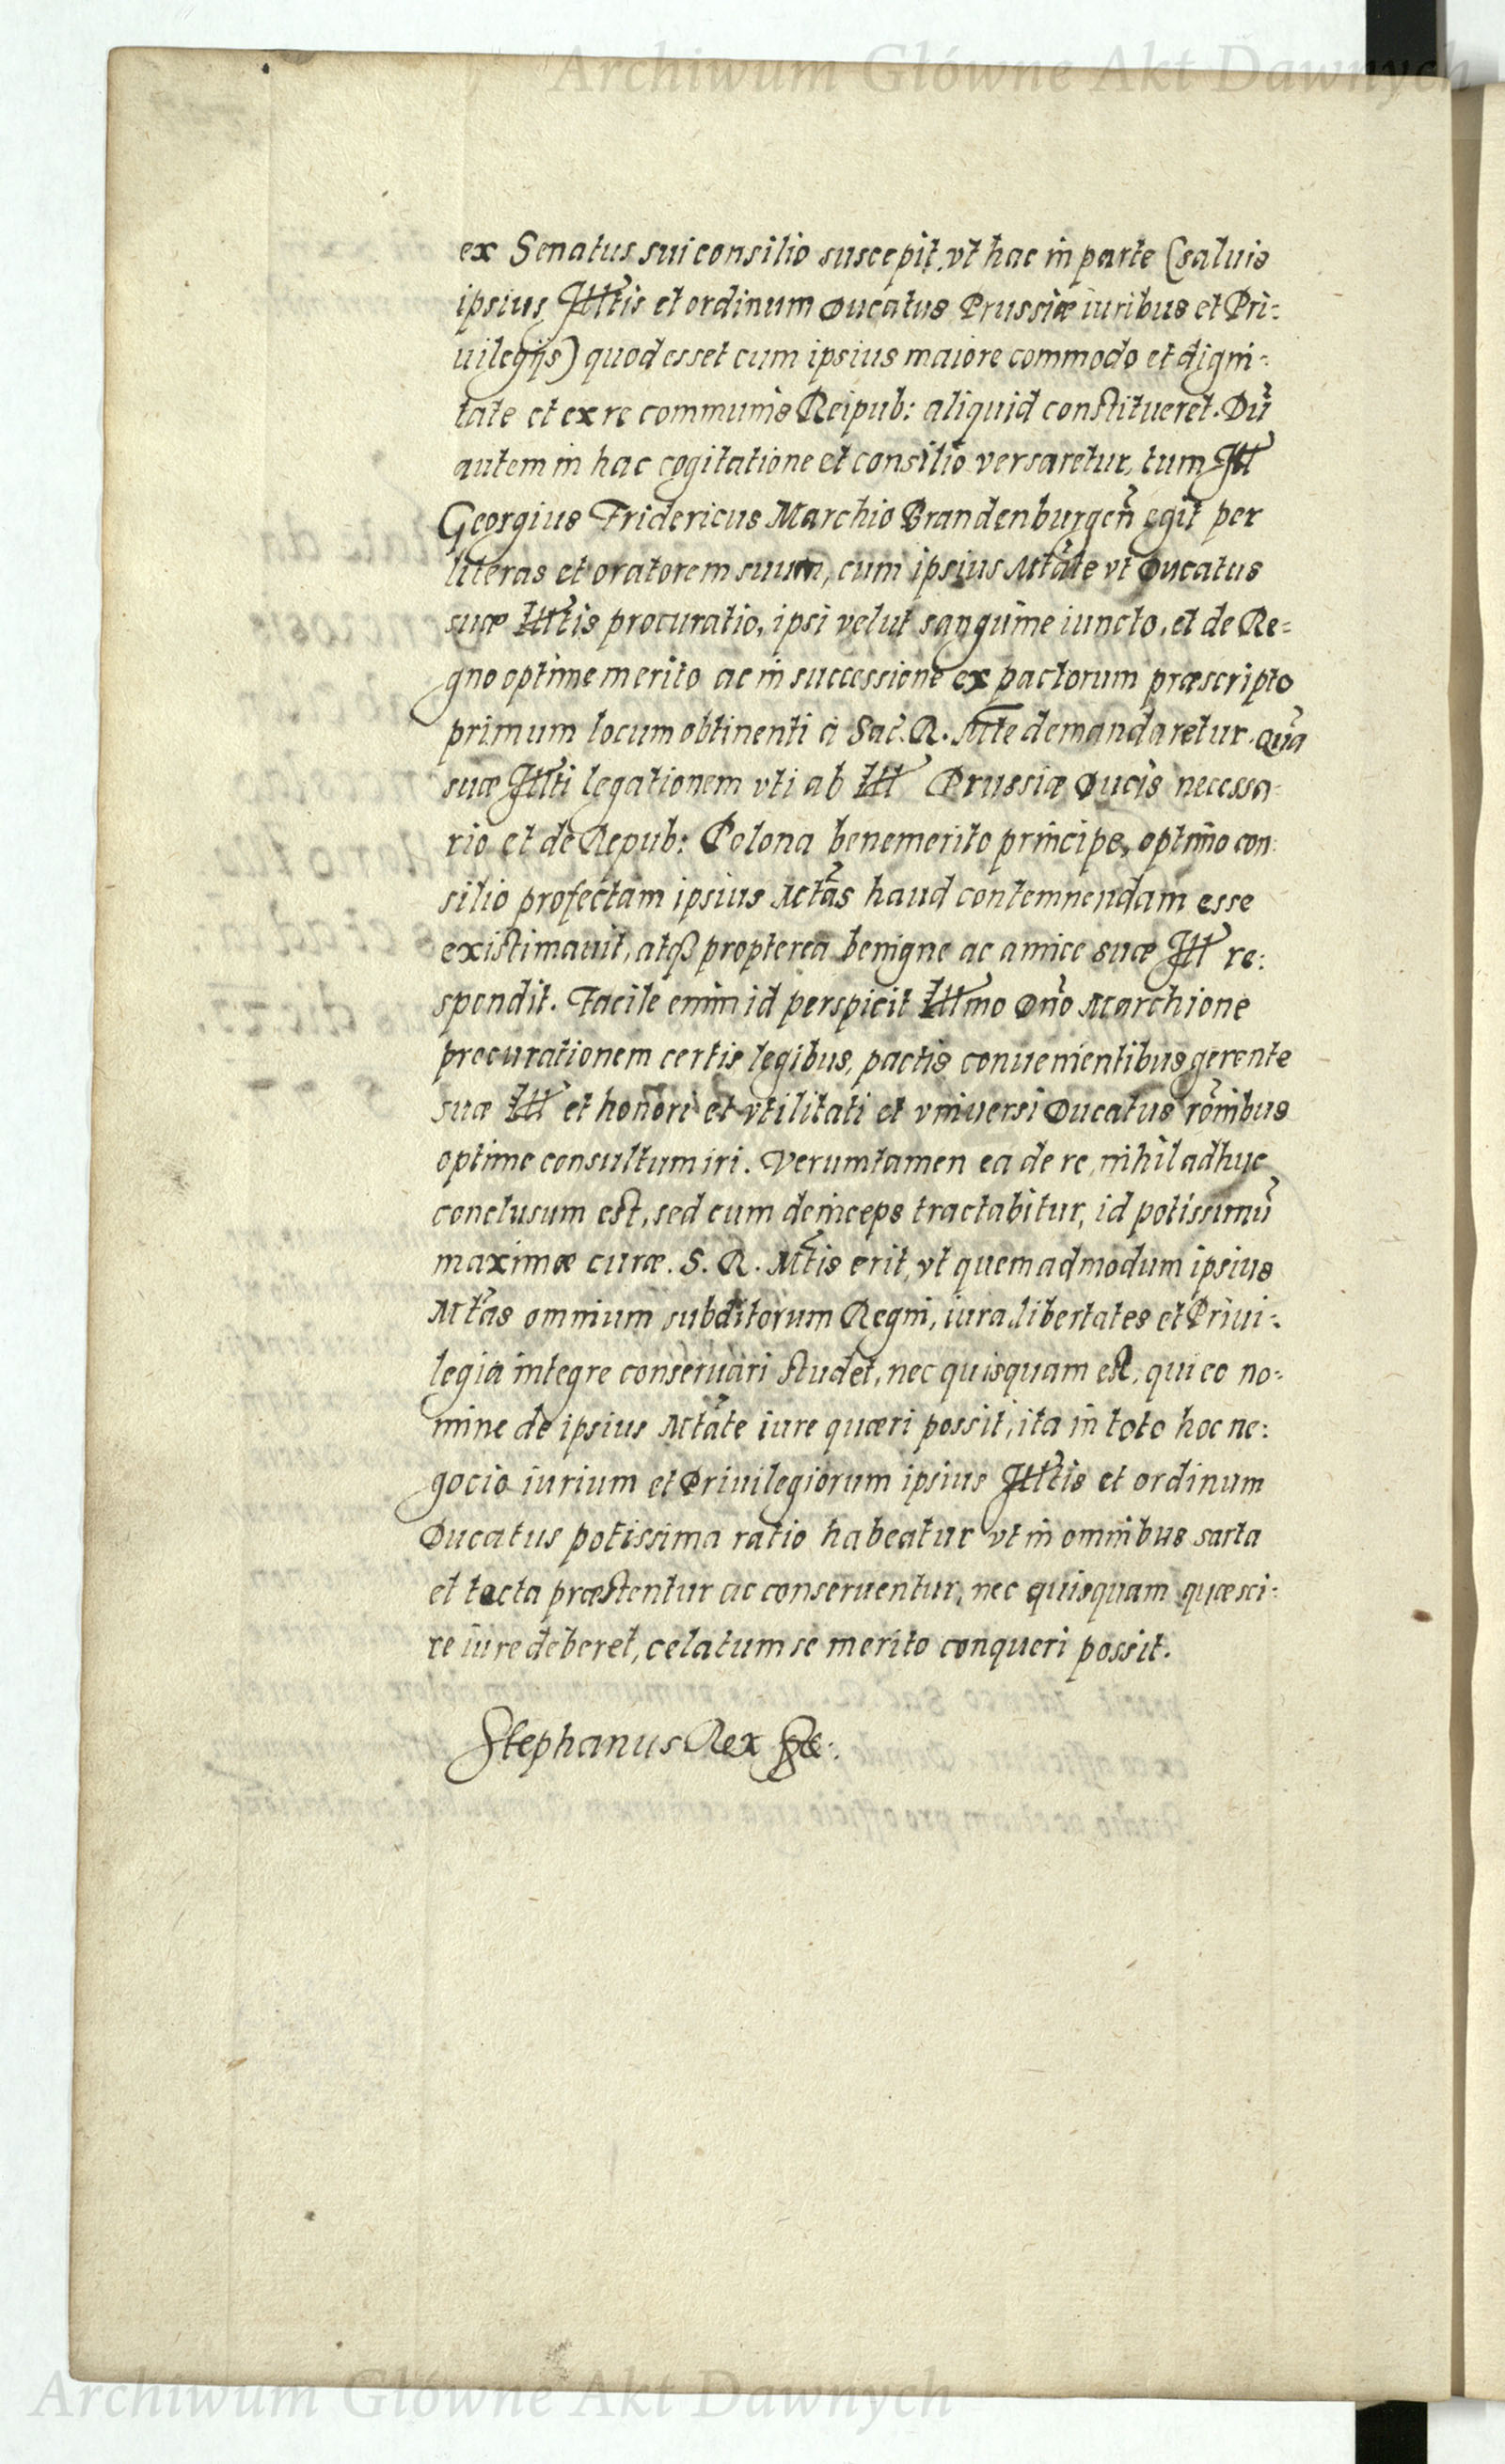 Archiwum Główne Akt Dawnych
ex Senatus sui consilio suscepit, vt hac in parte (saluis
ipsius Illtis et ordinum Ducatus Prussiæ iuribus et Pri-
uilegijs) quod esset cum ipsius maiore commodo et digni-
tate et ex re communis Reipub: aliquid constitueret. Dũ
autem in hac cogitatione et consilio versaretur, tum Ill
Georgius Fridericus Marchio Brandenburgeñ egit per
literas et oratorem suum, cum ipsius Mtate vt Ducatus
suæ Illtis procuratio, ipsi velut sanguine iuncto, et de Re=
gno optime merito ac in successione ex pactorum præscripto
primum locum obtinenti à Sac. R. Mte demandaretur. quã
suæ Illti legationem vti ab Ill Prussiæ Ducis necessa-
rio et de Repub: Polona benemerito principe, optimo con-
silio profectam ipsius Mtas haud contemnendam esse
existimauit, atqꝫ propterea benigne ac amice suæ Ill re:
spondit. Facile enim id perspicit Illmo Dño Marchione
procurationem certis legibus, pactis conuenientibus gerente
suæ Ill et honori et vtilitati et vniuersi Ducatus rõnibus
optime consultum iri. Verumtamen ea de re nihil adhuc
conclusum est, sed cum deinceps tractabitur, id potissimũ
maximæ curæ. S. R. Mtis erit, vt quemadmodum ipsius
Mtas omnium subditorum Regni, iura, libertates et Priui-
legia integre conseruari studet, nec quisquam est, qui eo no-
mine de ipsius Mtate iure quæri possit, ita in toto hoc ne:
gocio iurium et Priuilegiorum ipsius Illtis et ordinum
Ducatus potissima ratio habeatur vt in omnibus sarta
et tecta præstentur ac conseruentur, nec quisquam quæ sci-
re iure deberet, celatum se merito conqueri possit.
Stephanus Rex
Archiwum Główne Akt Dawnych